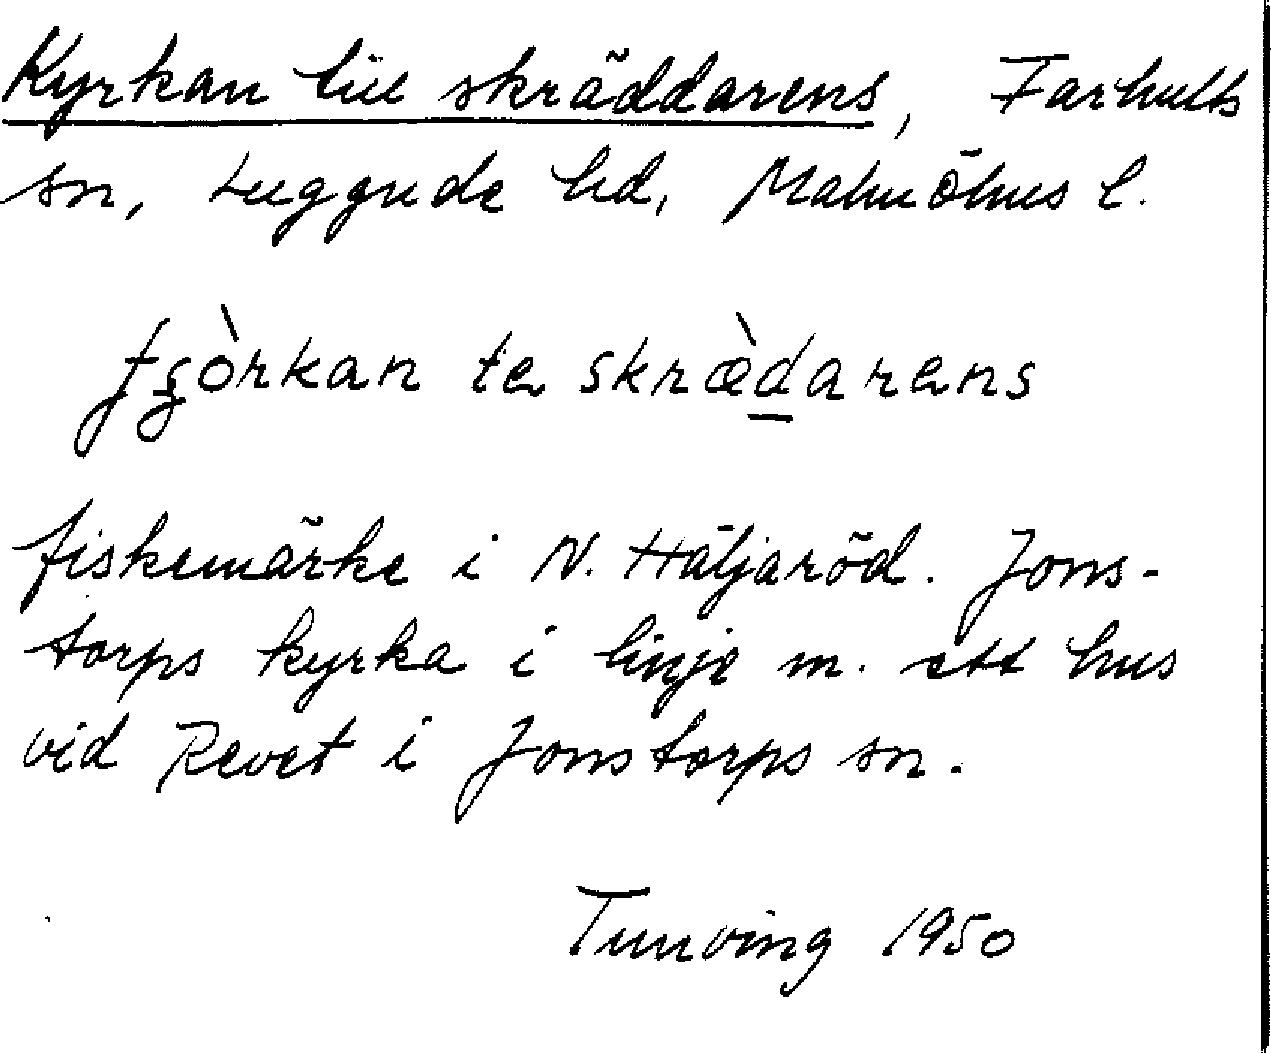 Kyrkan till skräddarens, Farhults
sn, Luggude hd, Malmöhus l.
tʃò̀rkan te skræ̀darens
fiskemärke i N. Häljaröd. Jons-
torps kyrka i linje m. ett hus
vid Revet i Jonstorps sn.
Tunving 1950